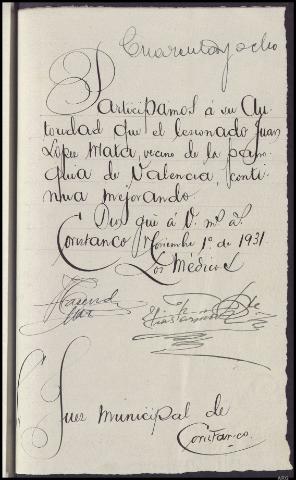 Cuarenta y ocho
Participamos á su Au-
toridad que el lesionado Juan
López Mata, vecino de la parro-
quia de Valencia, conti-
nua mejorando.
Dios gûe á V. m.s a.s
Coristanco Noviembre 1º de 1931
Los Médicos
Juez Municipal de
Coristanco.